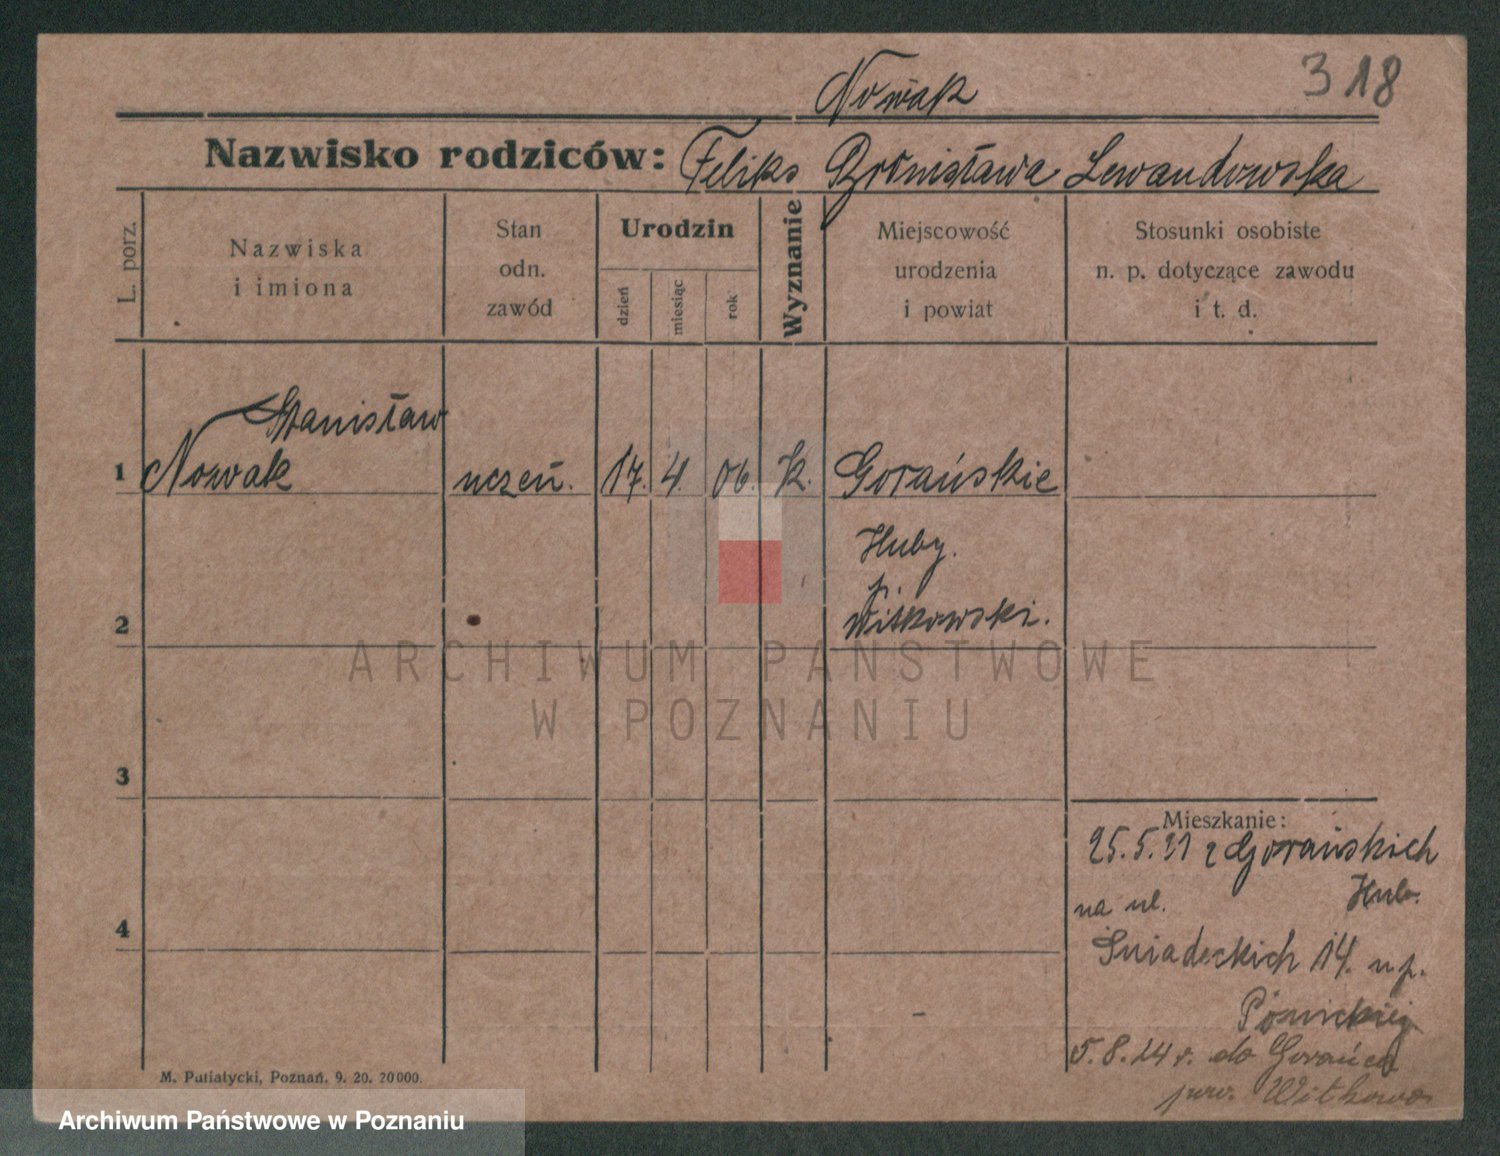 318
Nowak
Nazwisko rodziców: Feliks Bronisława Lewandowska
L. porz.
Nazwiska
i imiona
Stan
odn.
zawód
Urodzin
dzień
miesiąc
rok
Wyznanie
Miejscowość
urodzenia
i powiat
Stosunki osobiste
n. p. dotyczące zawodu
i t. d.
Stanisław
1 Nowak uczeń. 17. 4. 06. k. Gorańskie
Huby.
p.
2 Witkowski.
ARCHIWUM PAŃSTWOWE
W POZNANIU
3
Mieszkanie:
25.5.21 z Gorańskich
na ul. Hub.
4
Śniadeckich 14. u p.
5.8.24 r. do
pow. Witkowo
M. Putiatycki, Poznań. 9. 20. 20000.
Archiwum Państwowe w Poznaniu